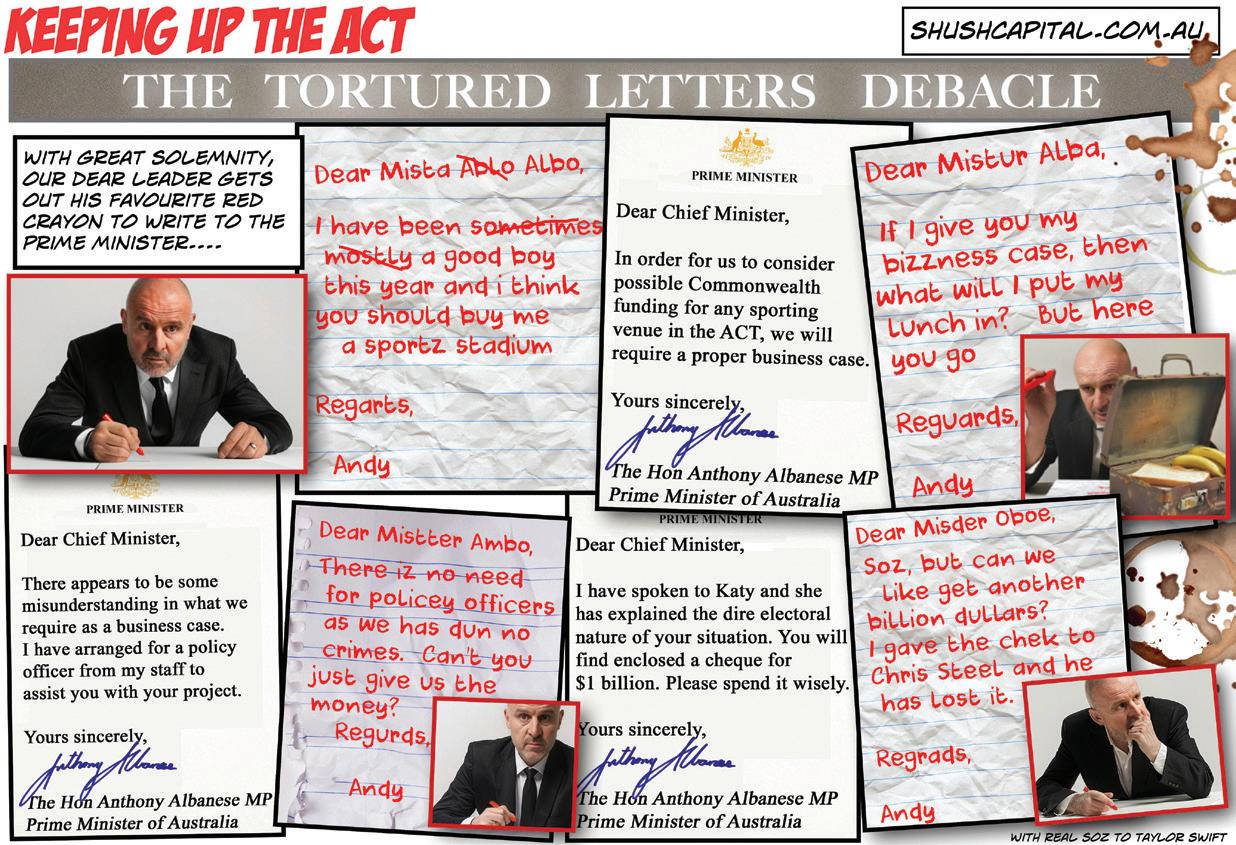 KEEPING UP THE ACT
SHUSHCAPITAL.COM.AU
THE TORTURED LETTERS DEBACLE
WITH GREAT SOLEMNITY,
OUR DEAR LEADER GETS
OUT HIS FAVOURITE RED
CRAYON TO WRITE TO THE
PRIME MINISTER....
Dear Mista Ablo Albo,
I have been sometimes
mostly a good boy
this year and i think
you should buy me
a sportz stadium
Regarts,
Andy
PRIME MINISTER
Dear Chief Minister,
In order for us to consider
possible Commonwealth
funding for any sporting
venue in the ACT, we will
require a proper business case.
Yours sincerely,
Anthony Albanese
The Hon Anthony Albanese MP
Prime Minister of Australia
Dear Mistur Alba,
If I give you my
bizzness case, then
what will I put my
lunch in? But here
you go
Reguards,
Andy
PRIME MINISTER
Dear Chief Minister,
There appears to be some
misunderstanding in what we
require as a business case.
I have arranged for a policy
officer from my staff to
assist you with your project.
Yours sincerely,
Anthony Albanese
The Hon Anthony Albanese MP
Prime Minister of Australia
Dear Mistter Ambo,
There iz no need
for policey officers
as we has dun no
crimes. Can't you
just give us the
money?
Regurds,
Andy
PRIME MINISTER
Dear Chief Minister,
I have spoken to Katy and she
has explained the dire electoral
nature of your situation. You will
find enclosed a cheque for
$1 billion. Please spend it wisely.
Yours sincerely,
Anthony Albanese
The Hon Anthony Albanese MP
Prime Minister of Australia
Dear Misder Oboe,
Soz, but can we
like get another
billion dullars?
I gave the chek to
Chris Steel and he
has lost it.
Regrads,
Andy
WITH REAL SOZ TO TAYLOR SWIFT